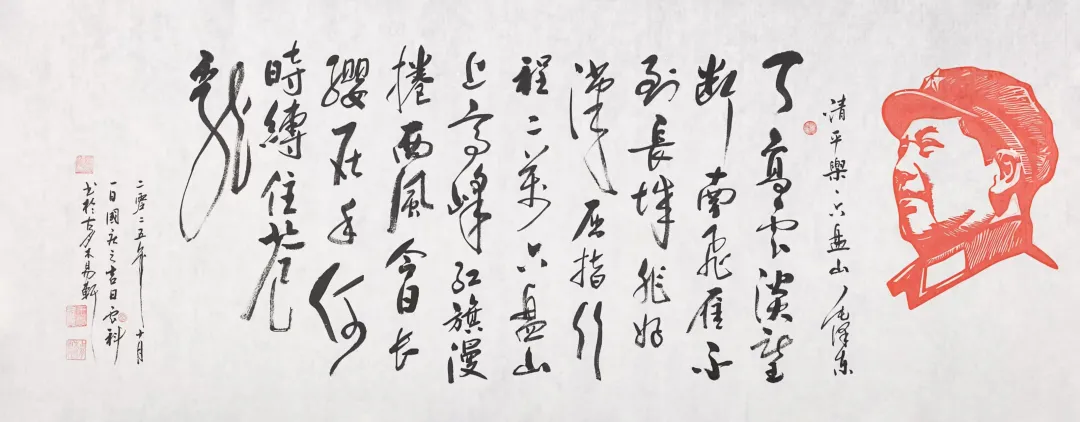 清平樂、六盘山 毛泽东
天高雲淡望
断南飛雁不
到長城非好
漢屈指行
程二萬六盘山
上高峰红旗漫
捲西風今日长
缨在手何
時縛住苍
龍
二零二五年十月
一日國庆之吉日
书於古木易軒